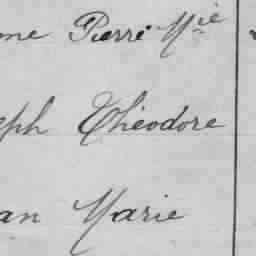 me Pierre Mie
eph Théodore
an Marie